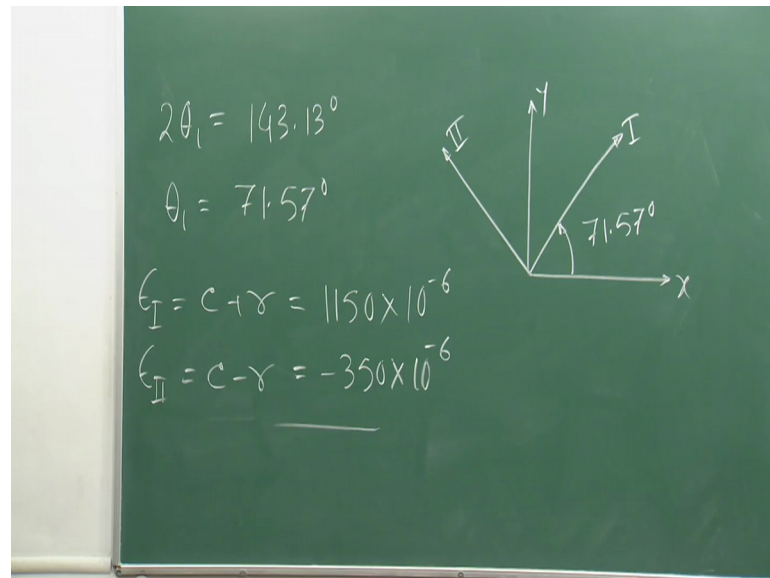 2θ₁ = 143.13°
θ₁ = 71.57°
ϵ_I = c + r = 1150 × 10⁻⁶
ϵ_II = c − r = −350 × 10⁻⁶
II
Y
I
71.57°
X